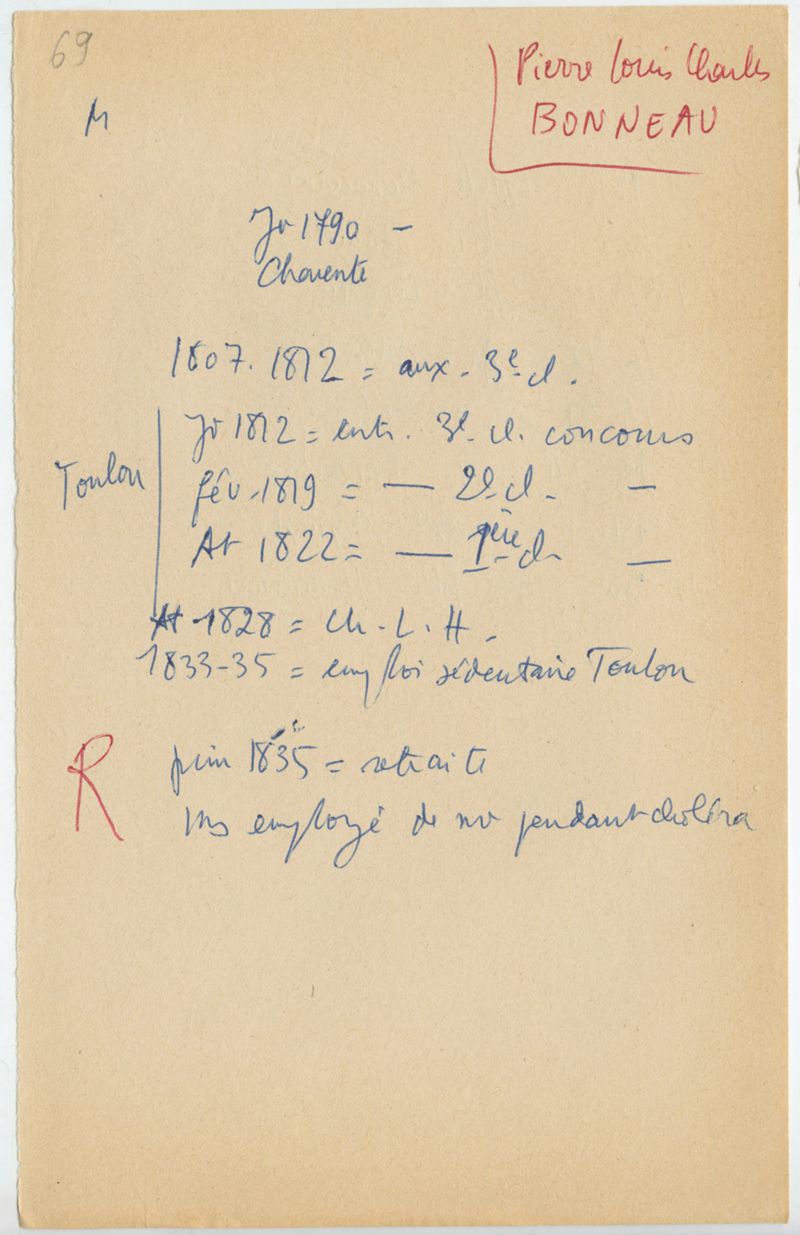 69
Pierre Louis Charles
BONNEAU
M
Jr 1790 -
Charente
1807.1812 = aux. 3e cl.
Toulon
Jr 1812 = ent. 3e cl. concours
fév. 1819 = — 2e cl. —
At 1822 = — 1ère cl. —
At 1828 = Ch. L. H.
1833-35 = emploi sédentaire Toulon
R
juin 1835 = retraite
ms employé de nv pendant choléra